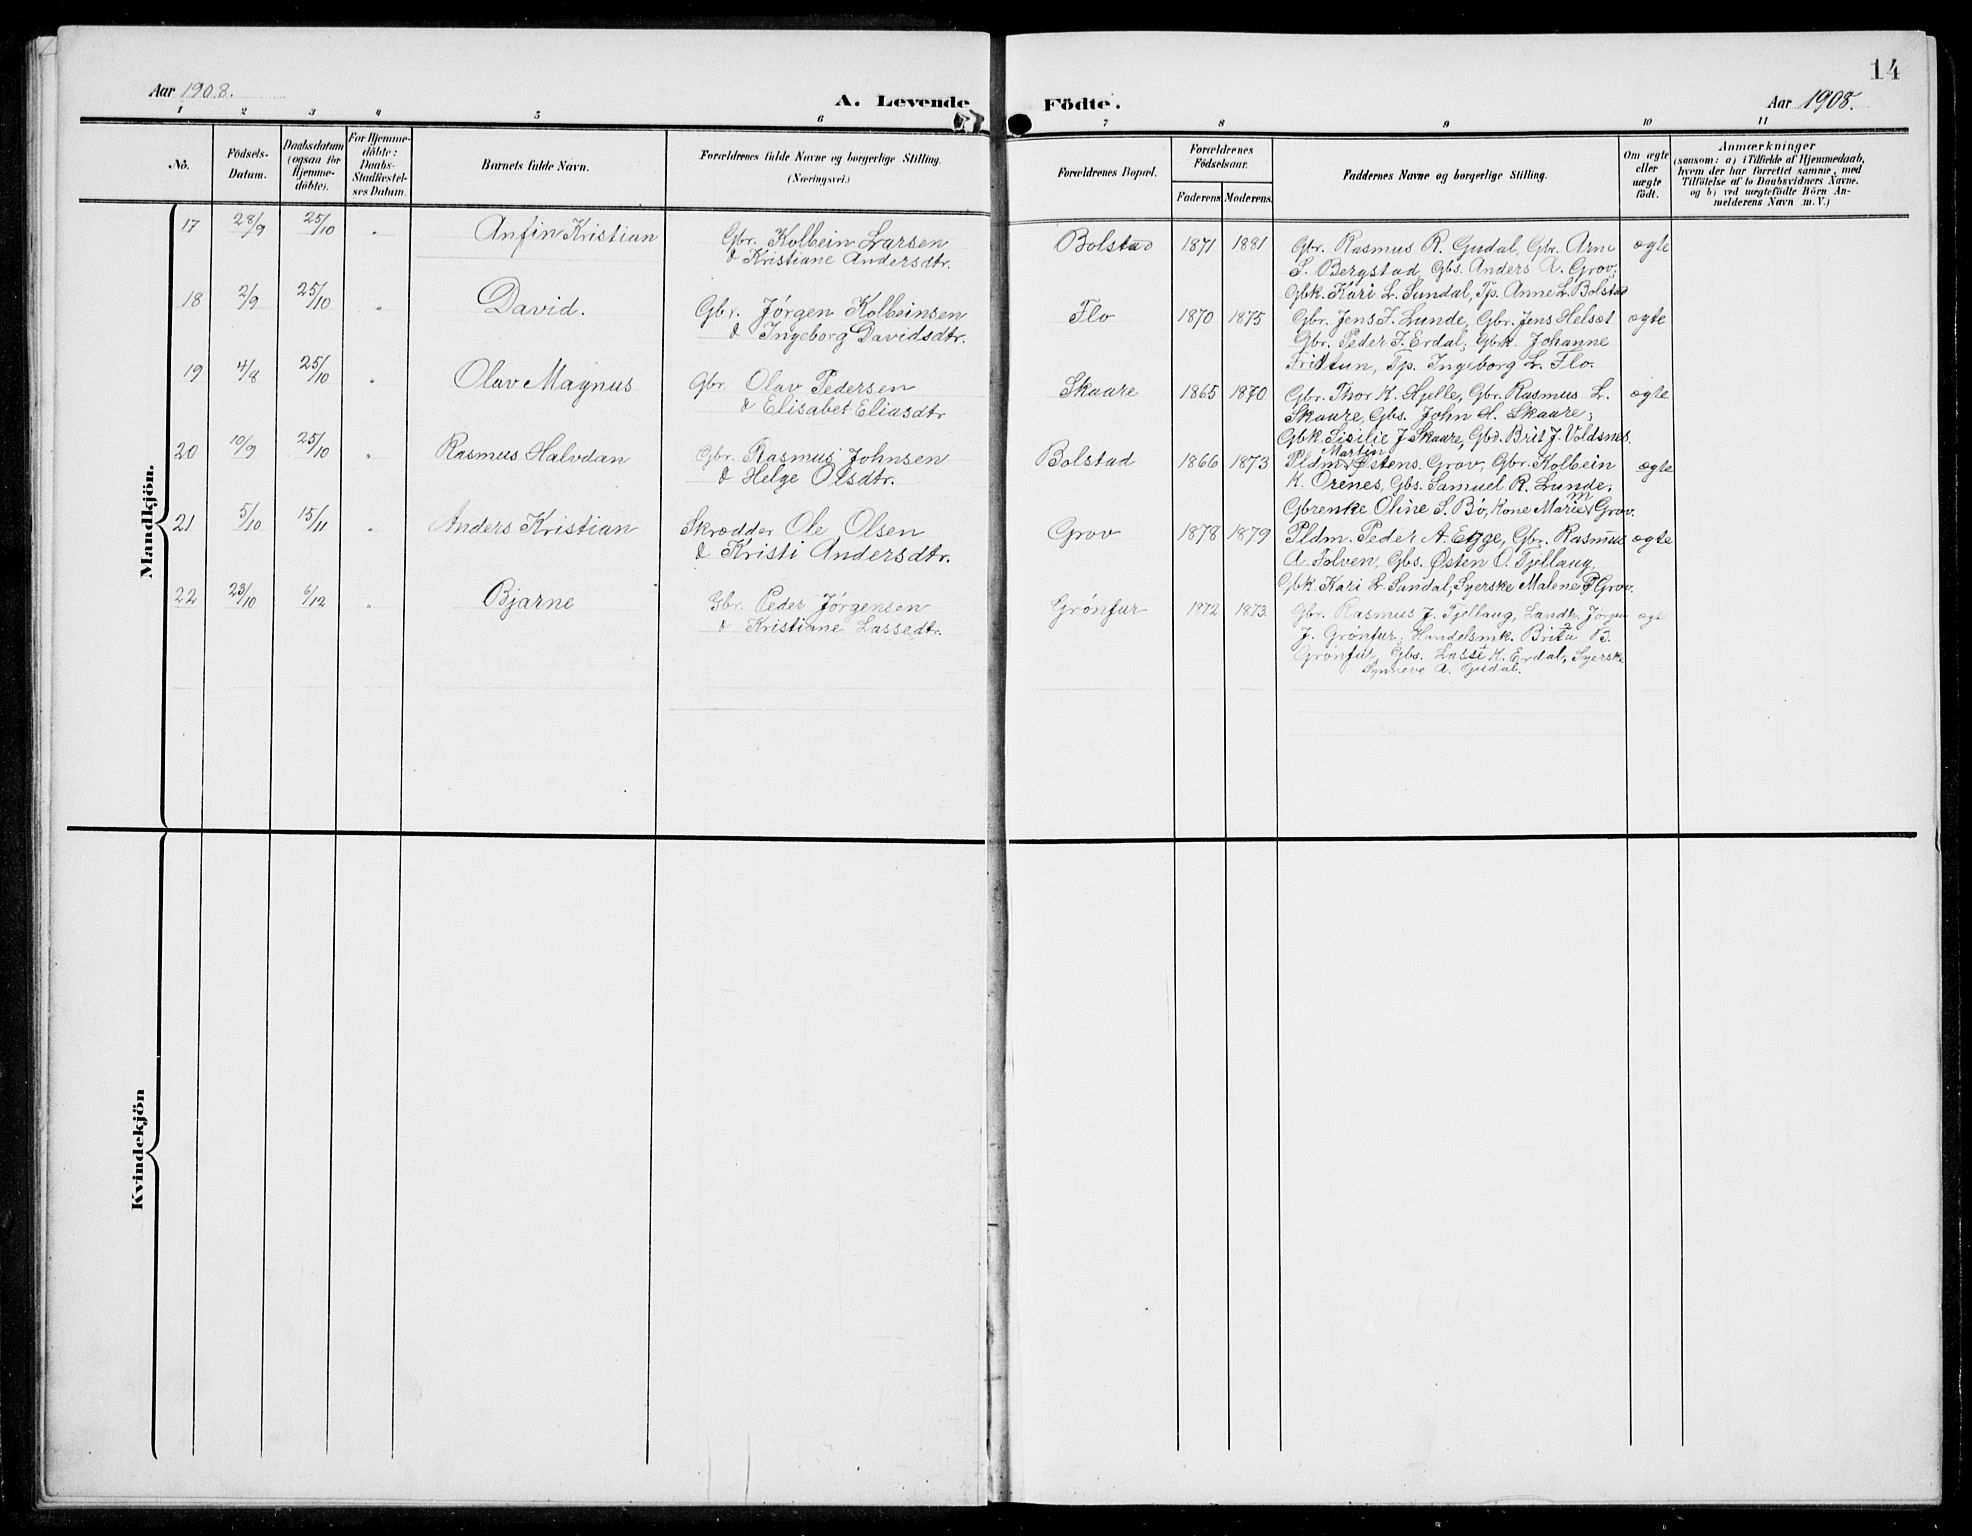 14
Aar 1908.
A. Levende Födte.
Aar 1908.
1 2 3 4 5 6 7 8 9 10 11
No.
Födsels-Datum.
Daabsdatum (ogsaa for Hjemmedöbte).
For Hjemmedöbte: Daabs-Stadfæstelses Datum.
Barnets fulde Navn.
Forældrenes fulde Navne og borgerlige Stilling.
(Næringsvei.)
Forældrenes Bopæl.
Forældrenes Födselsaar.
Faderens. Moderens.
Faddernes Navne og borgerlige Stilling.
Om ægte eller uægte födt.
Anmærkninger
(saasom: a) i Tilfælde af Hjemmedaab,
hvem der har forrettet samme, med
Tilföielse af to Daabsvidners Navne,
og b) ved uægtefödte Börn An-
melderens Navn m. V.)
Mandkjön.
17 28/9 25/10 " Anfin Kristian Gbr. Kolbein Larsen Bolstad 1871 1881 Gbr. Rasmus R. Gudal, Gbr. Arne ægte
& Kristiane Andersdtr. S. Bergstad, Gbs. Anders A. Grov,
Gbk. Kari L. Sundal, Tp. Anne L. Bolstad
18 2/9 25/10 " David. Gbr. Jørgen Kolbeinsen Flo 1870 1875 Gbr. Jens J. Lunde, Gbr. Jens Helset ægte
& Ingeborg Davidsdtr. Gbr. Peder J. Erdal, Gbk. Johanne
Frittun, Tp. Ingeborg L. Flo.
19 4/8 25/10 " Olav Magnus Gbr. Olav Pedersen Skaare 1865 1870 Gbr. Thor K. Hjelle, Gbr. Rasmus L. ægte
& Elisabet Eliasdtr Skaare, Gbs. John H. Skaare;
Gbk. Sisilie J Skaare, Gbd. Brit J. Voldsnes.
20 10/9 25/10 " Rasmus Halvdan Gbr. Rasmus Johnsen Bolstad 1866 1873 Pldm. Martin Østens. Grov, Gbr. Kolbein ægte
& Helge Olsdtr. K. Orenes, Gbs. Samuel R. Lunde;
Gbrenke Oline S. Bö, Kone Marie M Grov.
21 5/10 15/11 " Anders Kristian Skrædder Ole Olsen Grov 1878 1879 Pldm. Peder A. Egge, Gbr. Rasmus ægte
& Kristi Andersdtr. A. Folven, Gbs. Østen O. Tjellaug,
Gbk. Kari L. Sundal, Syerske Malene P Grov.
22 23/10 6/12 " Bjarne Gbr. Peder Jörgensen Grønfur 1872 1873 Gbr. Rasmus J. Tjellaug, Landh. Jörgen ægt
& Kristiane Lassedtr. J. Grönfur; Handelsmk. Brita B.
Grönfur, Gbs. Lasse K. Erdal, Syerske
Synneve A. Gudal.
Kvindekjön